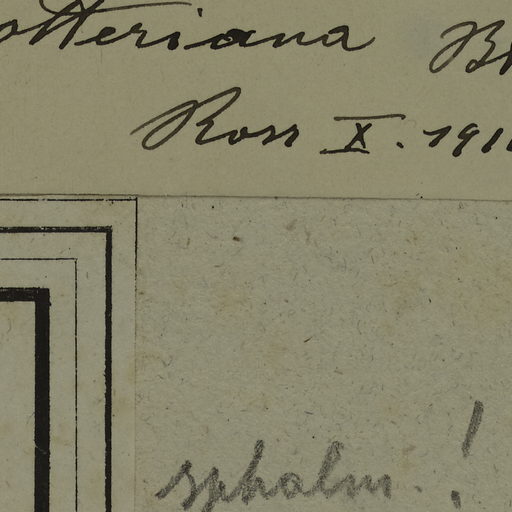 otteriana B
Ross X. 191
sphalm. !